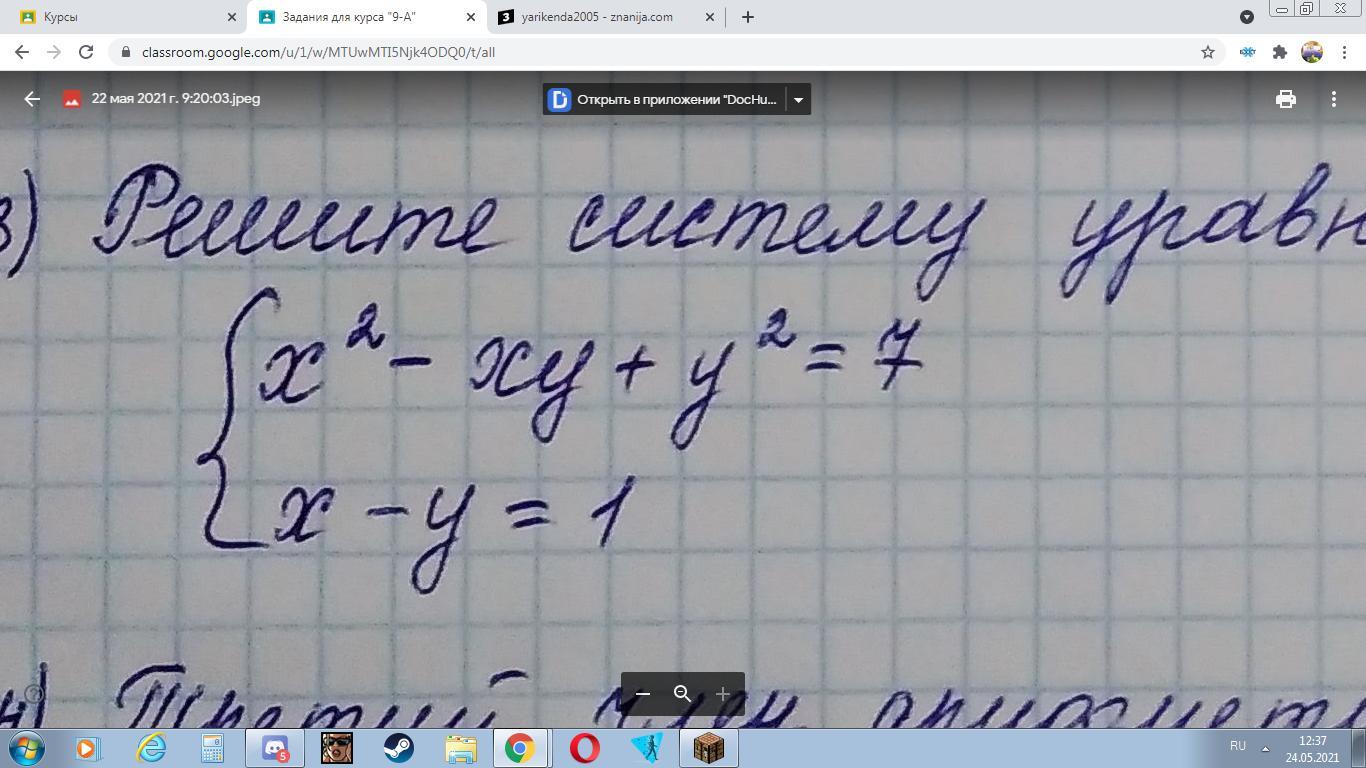 Курсы
Задания для курса "9-А"
yarikenda2005 - znanija.com
classroom.google.com/u/1/w/MTUwMTI5Njk4ODQ0/t/all
22 мая 2021 г. 9:20:03.jpeg
Открыть в приложении "DocHu...
в) Решите систему уравн
x² - xy + y² = 7
x - y = 1
Третий член арифмет
5
RU
12:37
24.05.2021